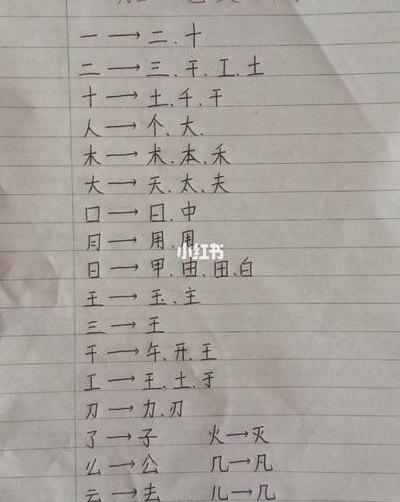 一→二、十
二→三、干、工、土
十→土、千、干
人→个、大、
木→术、本、禾
大→天、太、夫
口→日、中
月→用、甩
小红书
日→甲、由、田、白
王→玉、主
三→王
干→午、开、王
工→王、土、于
刀→力、刃
了→子 火→灭
么→公 几→凡
云→去 儿→几